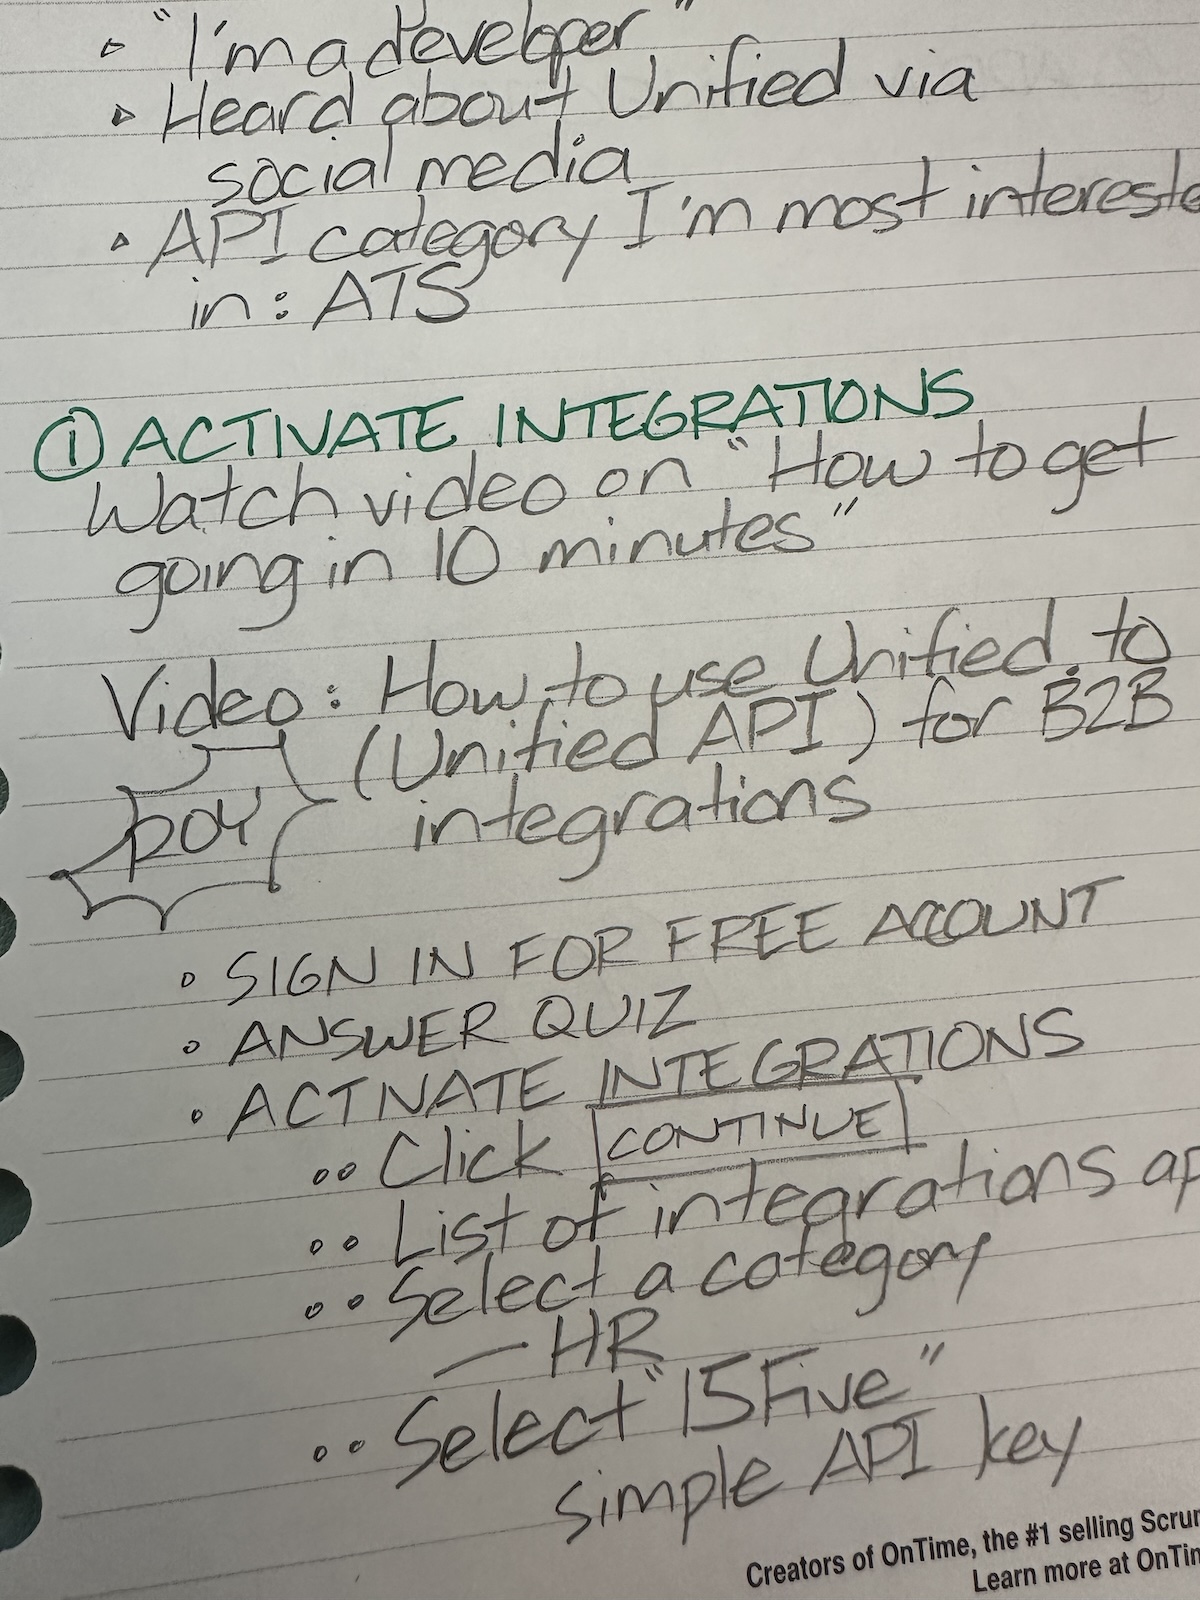 "I'm a developer"
Heard about Unified via
social media
API category I'm most intereste
in: ATS
① ACTIVATE INTEGRATIONS
Watch video on "How to get
going in 10 minutes"
Video: How to use Unified.to
(Unified API) for B2B
integrations
• SIGN IN FOR FREE ACCOUNT
• ANSWER QUIZ
• ACTIVATE INTEGRATIONS
•• Click CONTINUE
•• List of integrations ap
•• Select a category
— HR
•• Select "15Five"
simple API key
Creators of OnTime, the #1 selling Scru
Learn more at OnTi